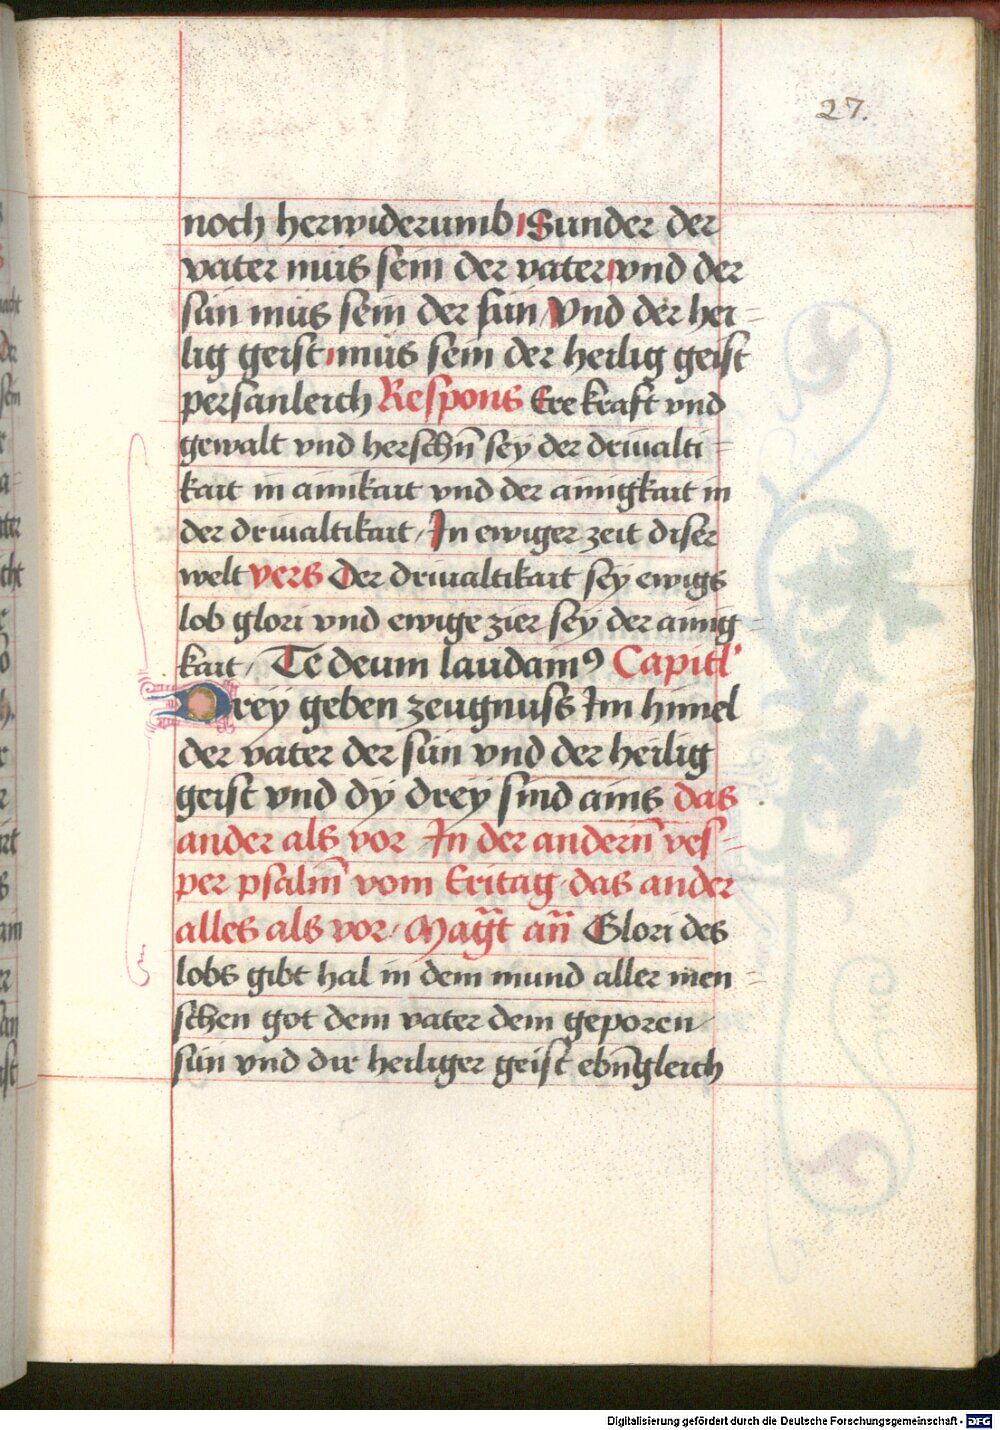 27.
noch herwiderumb Sunder der
vater müs sein der vater vnd der
sün müs sein der sün Vnd der hei=
lig geist müs sein der heilig geist
persanleich Respons Ere kraft vnd
gewalt vnd herschñ sey der driualti=
kait in ainikait vnd der ainigkait in
der driualtikait / In ewiger zeit diser
welt vers Der driualtikait seÿ ewigs
lob glori vnd ewige zier seÿ der ainig=
kait / Te deum laudamꝰ Capitl'
Dreÿ geben zeugnuss Im himel
der vater der sün vnd der heilig
geist vnd dÿ dreÿ sind ains das
ander als vor In der andern̄ ves=
per psalm̄ vom Eritag das ander
alles als vor / Mag̃t an̄ Glori des
lobs gibt hal in dem mund aller men=
schen got dem vater dem geporen
sün vnd dir heiliger geist ebn̄gleich
Digitalisierung gefördert durch die Deutsche Forschungsgemeinschaft - DFG